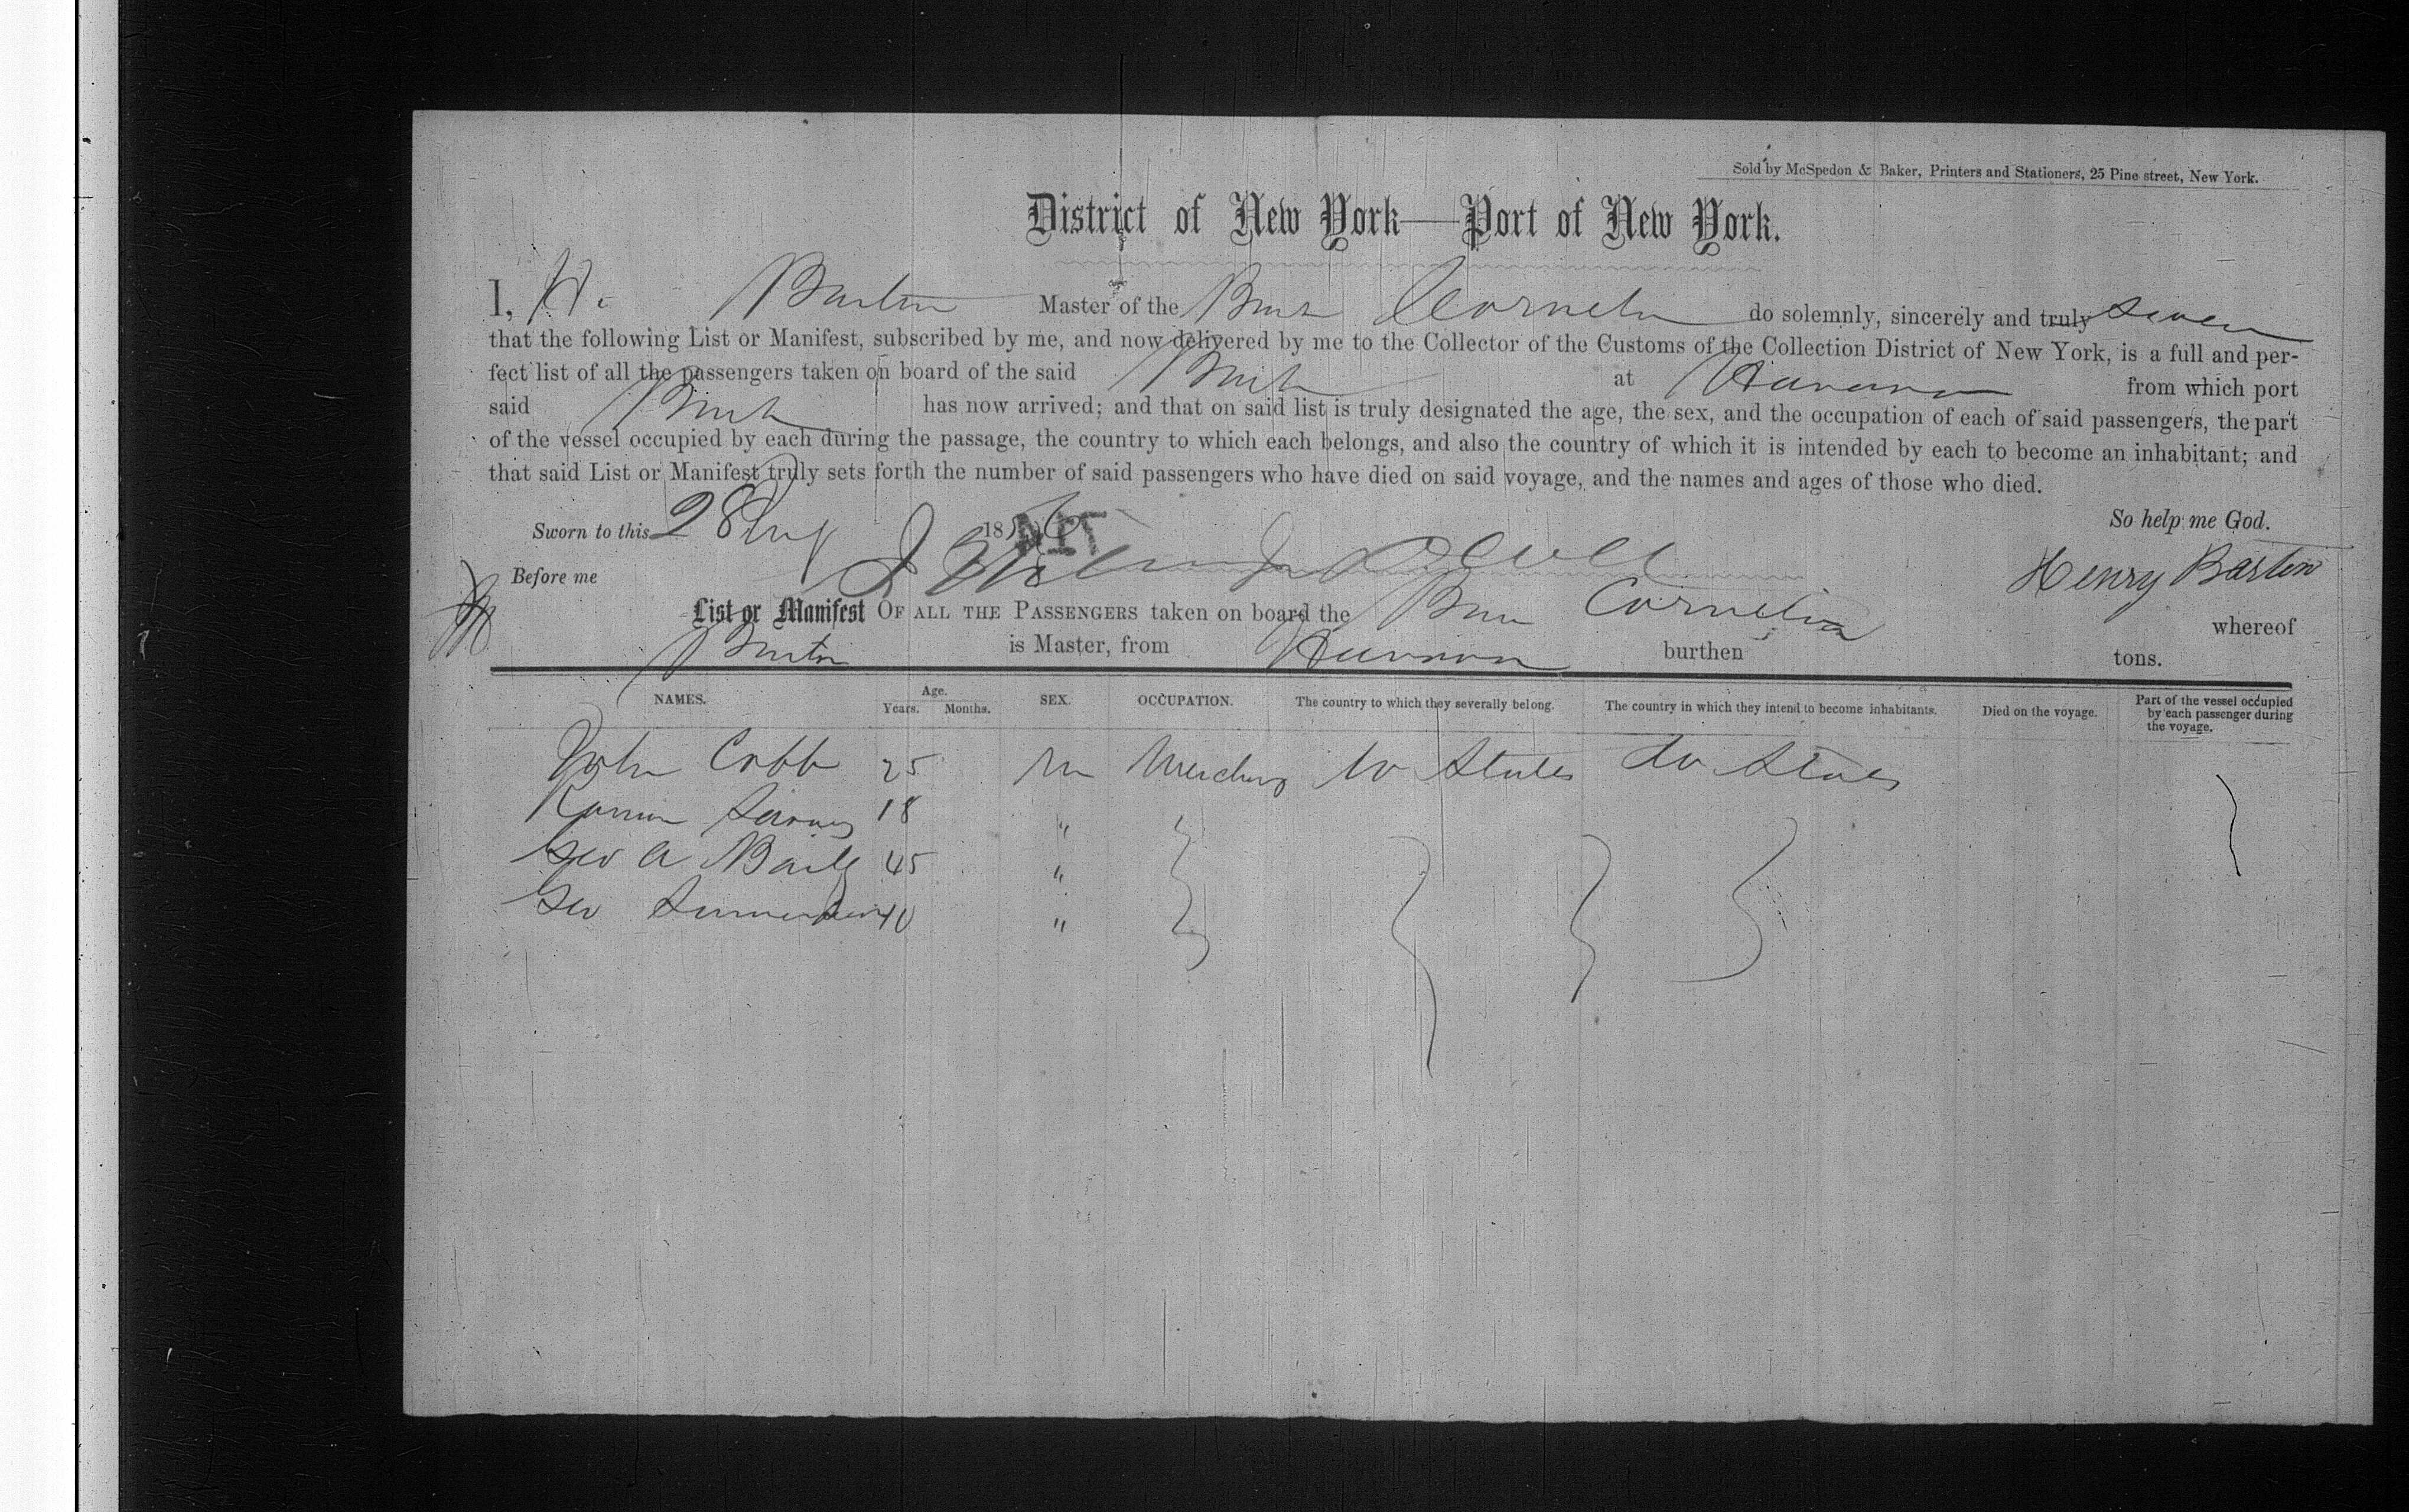 Sold by McSpedon & Baker, Printers and Stationers, 25 Pine street, New York.
District of New York—Port of New York.
I, H. Barton Master of the Bark Cornelia do solemnly, sincerely and truly swear
that the following List or Manifest, subscribed by me, and now delivered by me to the Collector of the Customs of the Collection District of New York, is a full and per-
fect list of all the passengers taken on board of the said Bark at Havana from which port
said Bark has now arrived; and that on said list is truly designated the age, the sex, and the occupation of each of said passengers, the part
of the vessel occupied by each during the passage, the country to which each belongs, and also the country of which it is intended by each to become an inhabitant; and
that said List or Manifest truly sets forth the number of said passengers who have died on said voyage, and the names and ages of those who died.
Sworn to this 28 Aug 1856 So help me God.
Before me Henry Barton
List or Manifest OF ALL THE PASSENGERS taken on board the Bark Cornelia whereof
Barton is Master, from Havana burthen tons.
NAMES. Age. Years. Months. SEX. OCCUPATION. The country to which they severally belong. The country in which they intend to become inhabitants. Died on the voyage. Part of the vessel occupied by each passenger during the voyage.
John Cobb 25 M U States U States
18 "
Geo A 45 "
Geo 40 "